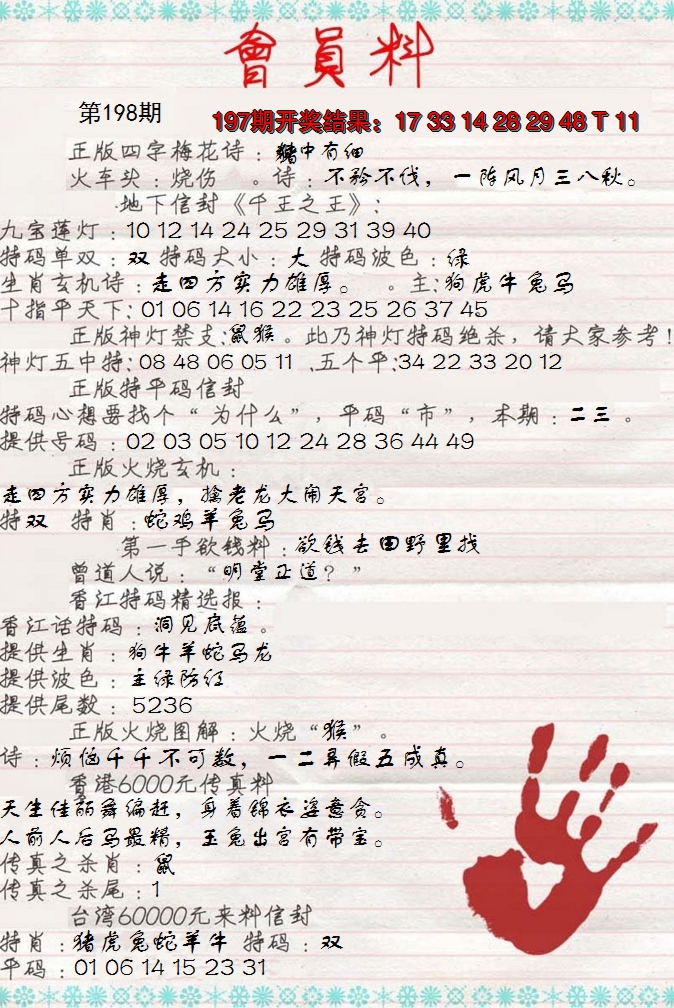 會員料
第198期
197期开奖结果：17 33 14 28 29 48 T 11
正版四字梅花诗：精中有细
火车头：烧伤 。诗：不矜不伐，一阵风月三八秋。
地下信封《千王之王》：
九宝莲灯：10 12 14 24 25 29 31 39 40
特码单双：双 特码大小：大 特码波色：绿
生肖玄机诗：走四方实力雄厚。 。主：狗虎牛兔马
十指平天下：01 06 14 16 22 23 25 26 37 45
正版神灯禁支：鼠猴。此乃神灯特码绝杀，请大家参考！
神灯五中特：08 48 06 05 11 、五个平：34 22 33 20 12
正版特平码信封
特码心想要找个“为什么”，平码“市”，本期：二三。
提供号码：02 03 05 10 12 24 28 36 44 49
正版火烧玄机：
走四方实力雄厚，擒老龙大闹天宫。
特双 特肖：蛇鸡羊兔马
第一手欲钱料：欲钱去田野里找
曾道人说：“明堂正道？”
香江特码精选报：
香江话特码：洞见底蕴。
提供生肖：狗牛羊蛇马龙
提供波色：主绿防红
提供尾数：5236
正版火烧图解：火烧“猴”。
诗：烦恼千千不可数，一二弄假五成真。
香港6000元传真料
天生佳丽舞编赶，身着锦衣姿意贪。
人前人后马最精，玉兔出宫有带宝。
传真之杀肖：鼠
传真之杀尾：1
台湾60000元来料信封
特肖：猪虎兔蛇羊牛 特码：双
平码：01 06 14 15 23 31